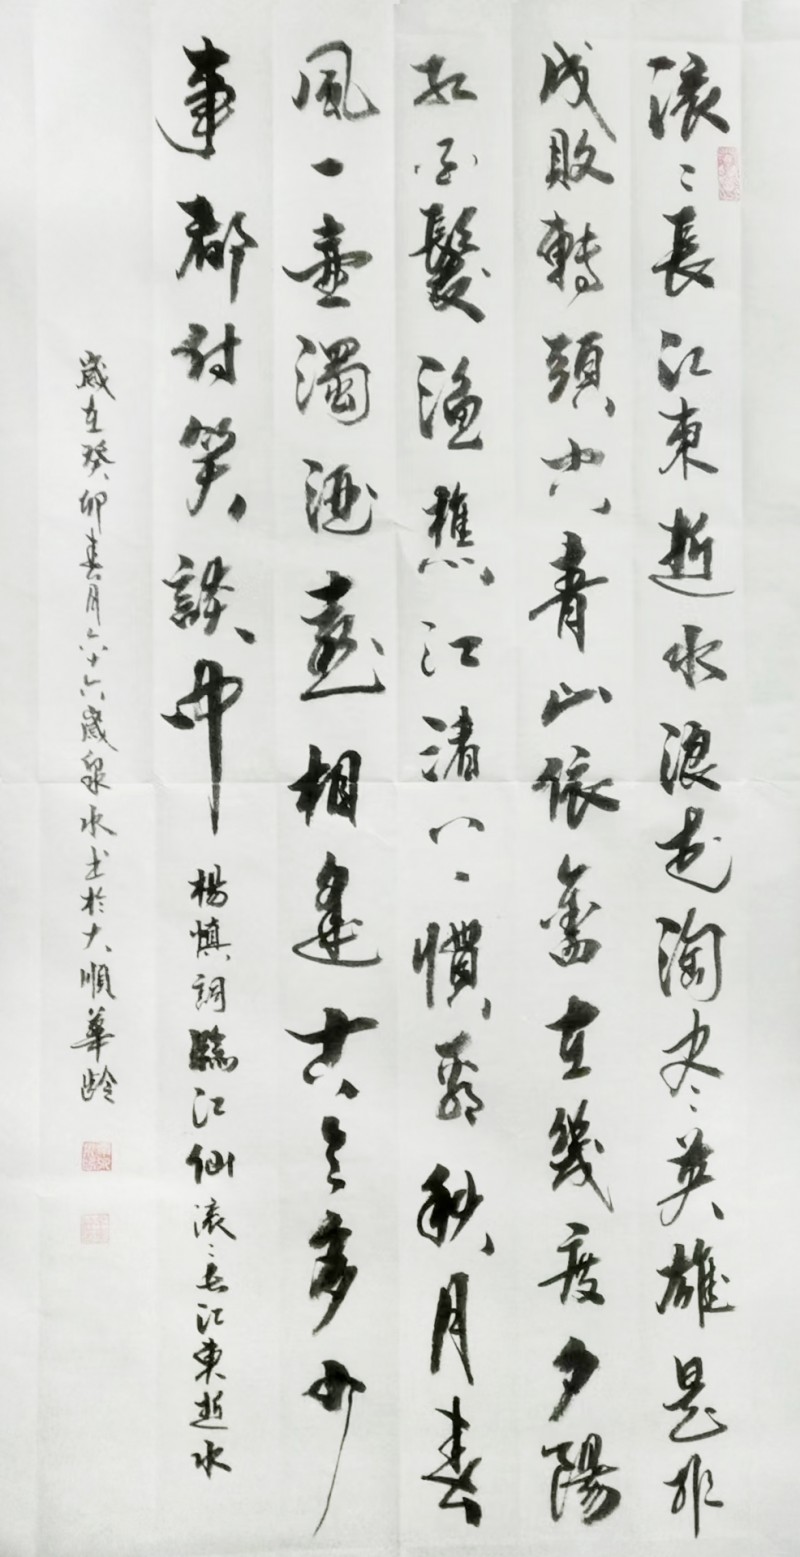 滚〻長江東逝水浪花淘尽英雄是非
成敗轉頭空青山依舊在幾度夕陽
紅白髮漁樵江渚上慣看秋月春
風一壺濁酒喜相逢古今多少
事都付笑談中
楊慎詞臨江仙滚〻长江東逝水
歲在癸卯春月六十六歲泉水书於大順華龄